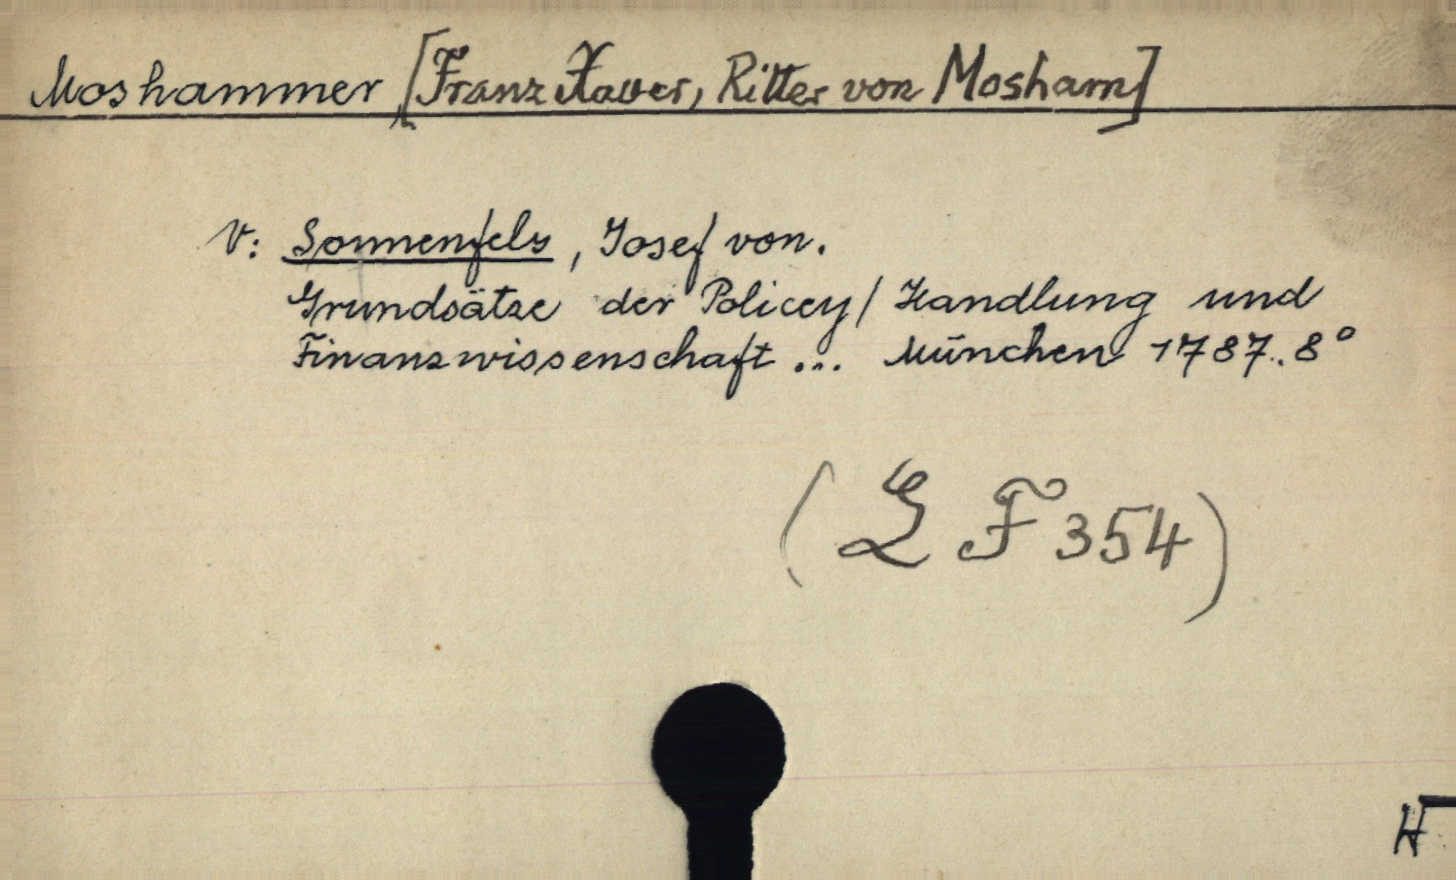 Moshammer [Franz Xaver, Ritter von Mosham]
V: Sonnenfels, Josef von.
Grundsätze der Policey/ Handlung und
Finanzwissenschaft ... München 1787. 8°
(L F 354)
H